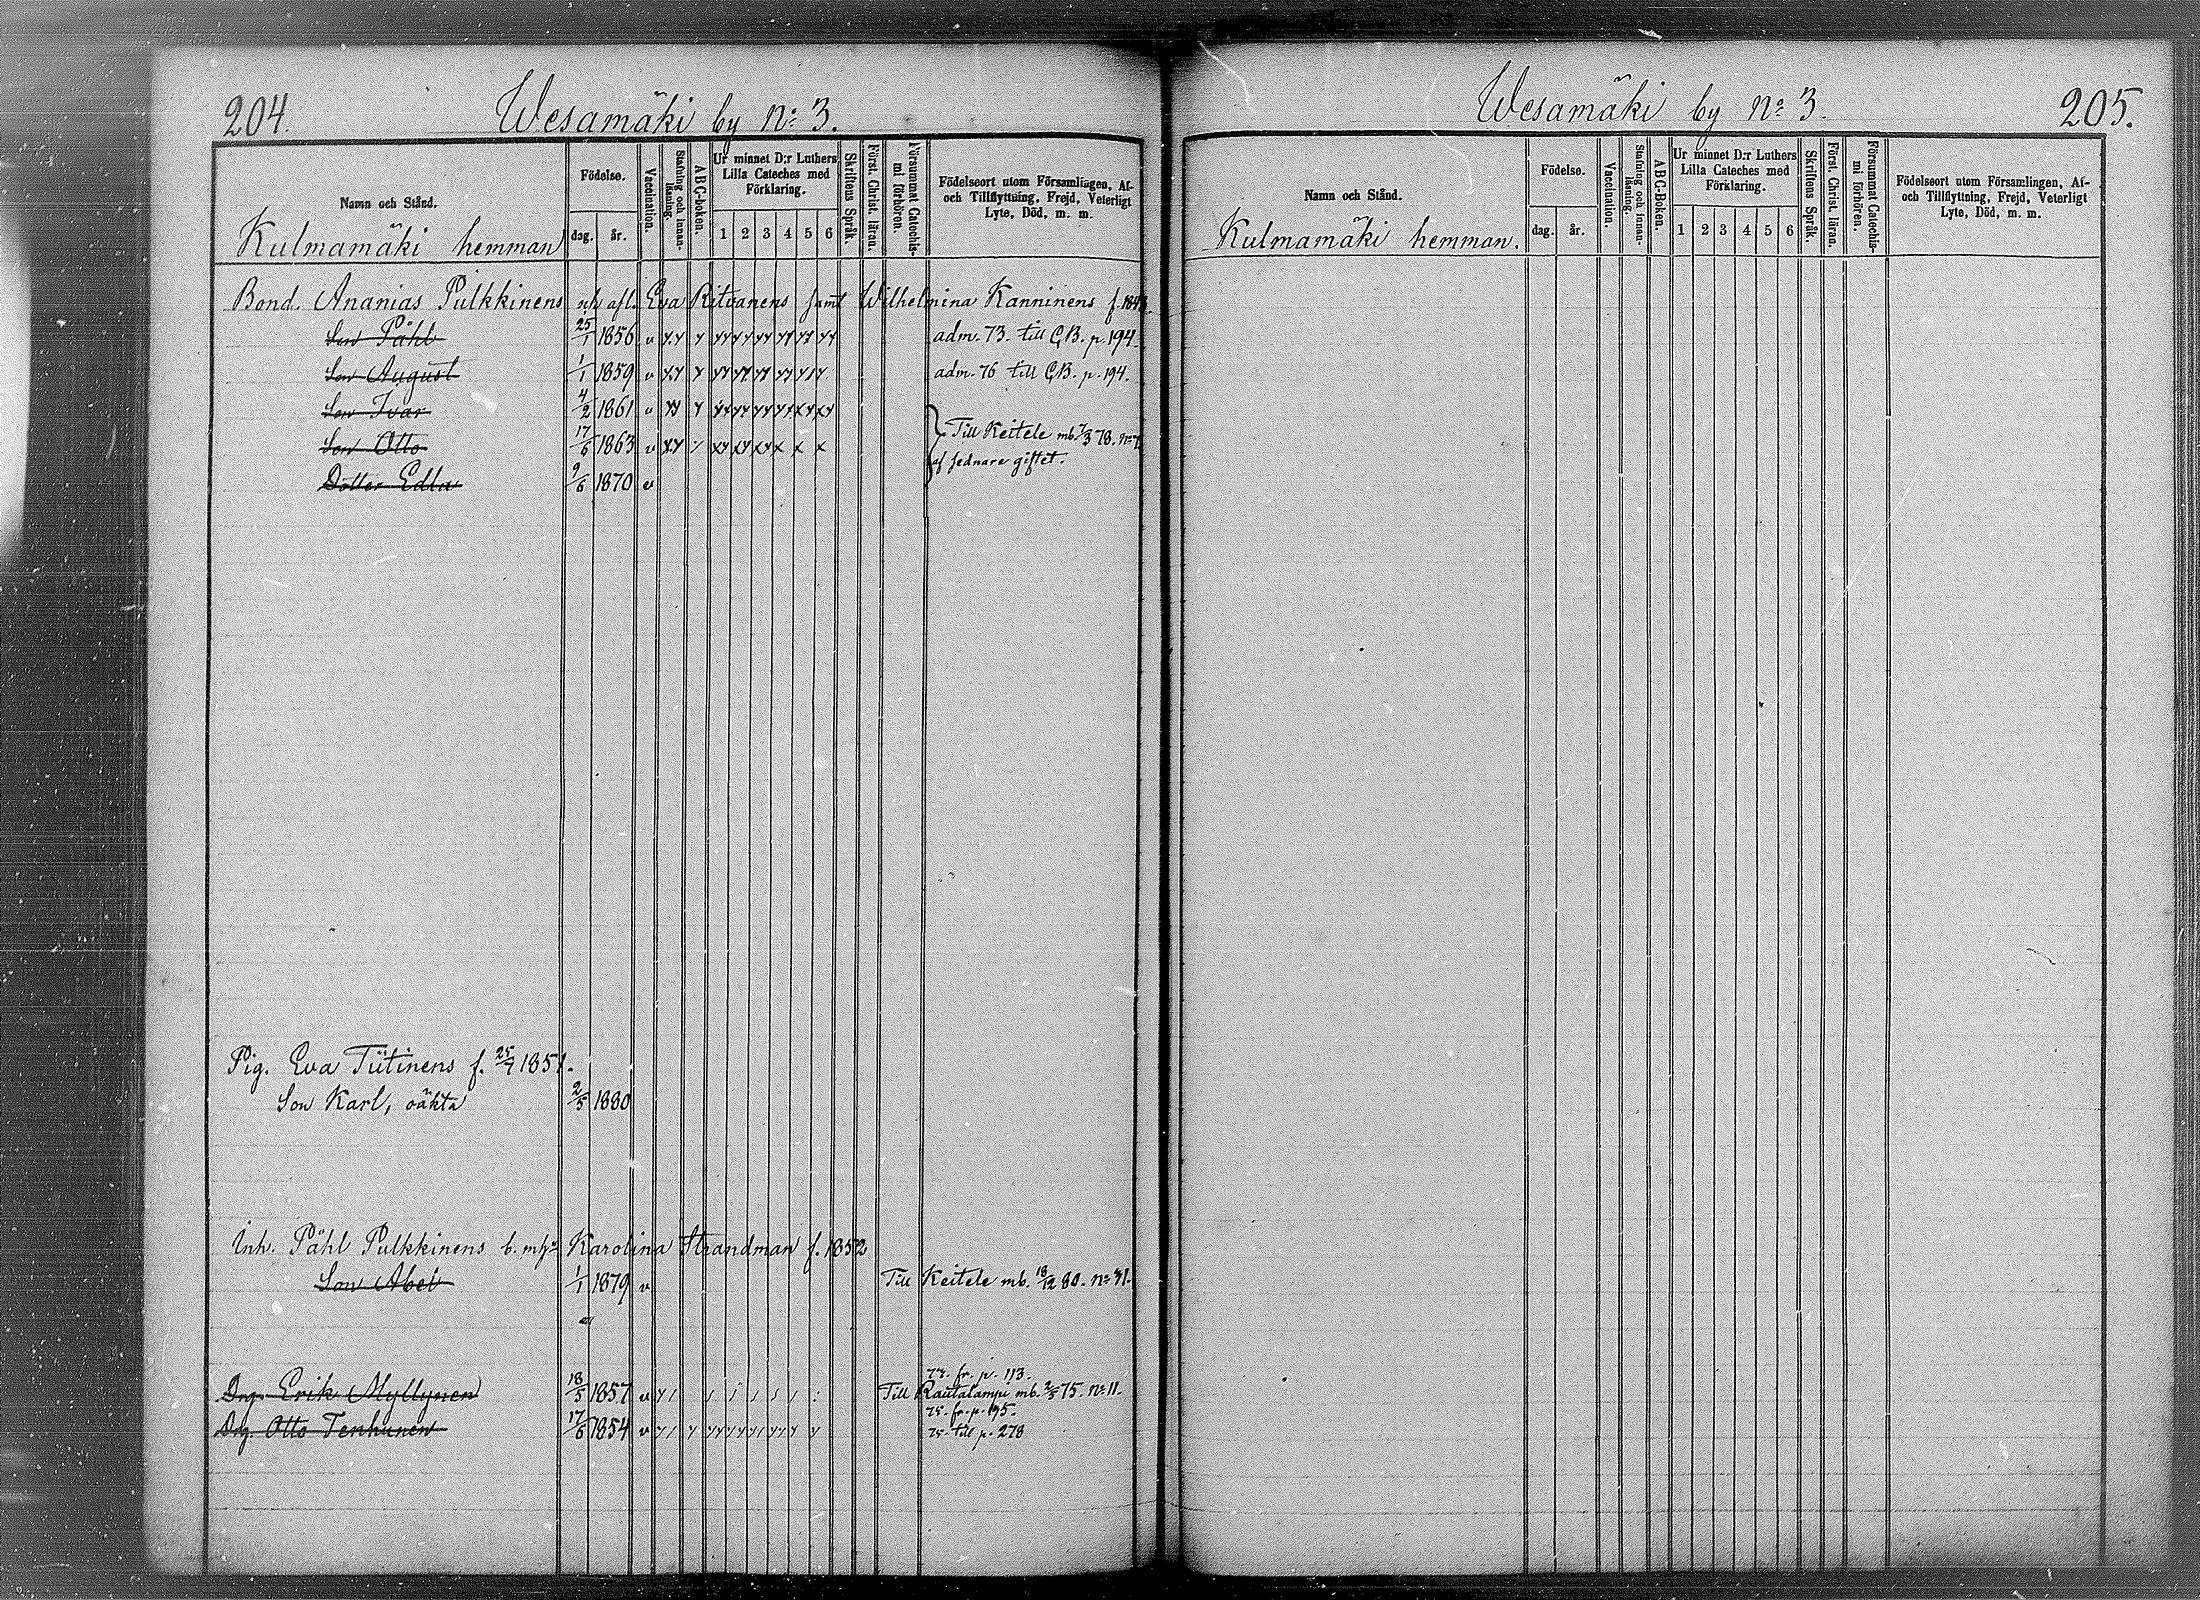 204. Wesamäki by No 3.
Namn och Stånd.
Födelse.
dag. år.
Vaccination.
Stafning och innan-läsning.
ABC-boken.
Ur minnet D:r Luthers
Lilla Cateches med
Förklaring.
1 2 3 4 5 6
Skriftens Språk.
Först. Christ. läran.
Försummat Catechis-
mi förhören.
Födelseort utom Församlingen, Af-
och Tillflyttning, Frejd, Veterligt
Lyte, Död, m. m.
Kulmamäki hemman
Bond. Ananias Pulkkinens och afl. Eva Ritvanens samt Wilhelmina Kanninens f. 1843.
Son Påhl 25/1 1856 v adm. 73. till C.B. p. 194.
Son August 1/1 1859 v adm. 76 till C.B. p. 194.
Son Ivar 4/2 1861 v
Son Otto 17/6 1863 v Till Keitele mb. 7/3 78. No
af sednare giftet.
Dotter Edla 9/6 1870 v
Pig. Eva Tiitinens f. 25/7 1851.
Son Karl, oäkta 2/5 1880
Inh. Påhl Pulkkinens b. m. h. Karolina Strandman f. 1852
Son Abel 1/1 1879 v Till Keitele mb. 18/12 80. No 31.
fr. p. 113.
Drg. Erik Myllynen 18/5 1857 v Till Rautalampi mb. 2/5 75. No 11.
75. fr. p. 195.
Drg. Otto Tenhunen 17/6 1854 v 75. till p. 278
Wesamäki by No 3. 205.
Namn och Stånd.
Födelse.
dag. år.
Vaccination.
Stafning och innan-
läsning.
ABC-Boken.
Ur minnet D:r Luthers
Lilla Cateches med
Förklaring.
1 2 3 4 5 6
Skriftens Språk.
Först. Christ. läran.
Försummat Catechis-
mi förhören.
Födelseort utom Församlingen, Af-
och Tillflyttning, Frejd, Veterligt
Lyte, Död, m. m.
Kulmamäki hemman.